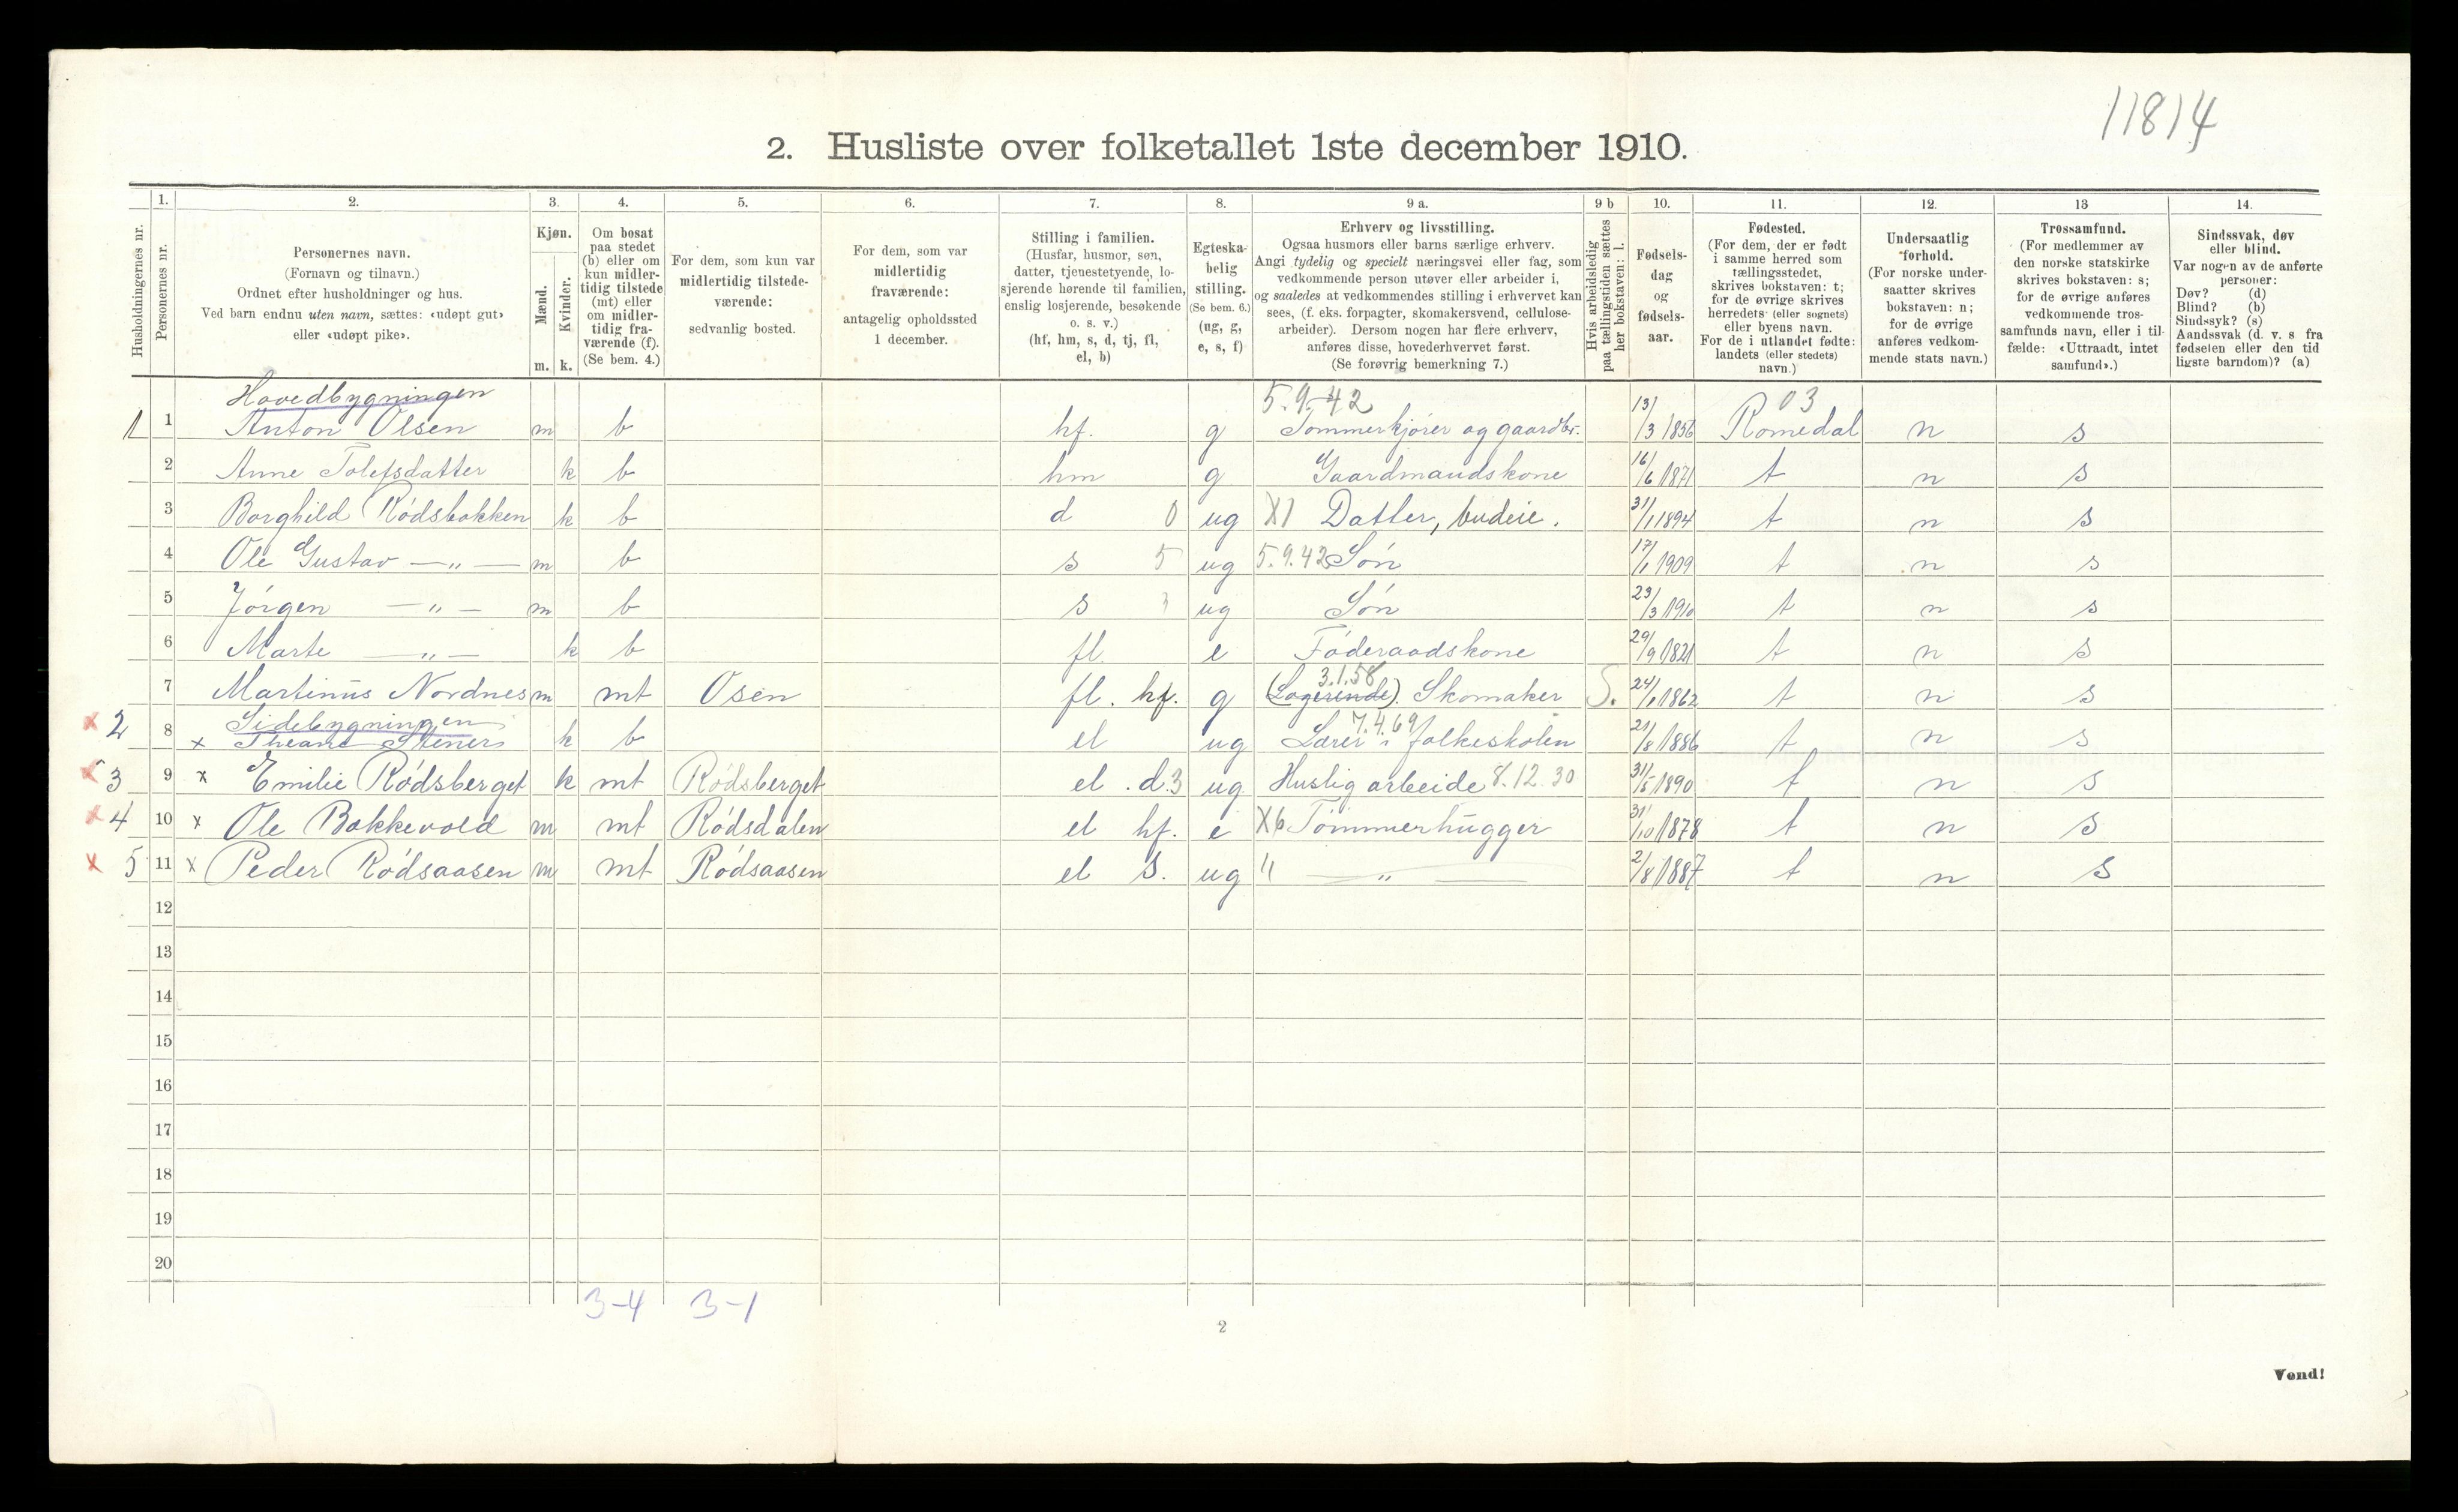 11814
2. Husliste over folketallet 1ste december 1910.
Husholdningernes nr.
1.
Personernes nr.
2.
Personernes navn.
(Fornavn og tilnavn.)
Ordnet efter husholdninger og hus.
Ved barn endnu uten navn, sættes: «udøpt gut»
eller «udøpt pike».
3.
Kjøn.
Mænd.
Kvinder.
m. k.
4.
Om bosat
paa stedet
(b) eller om
kun midler-
tidig tilstede
(mt) eller
om midler-
tidig fra-
værende (f).
(Se bem. 4.)
5.
For dem, som kun var
midlertidig tilstede-
værende:
sedvanlig bosted.
6.
For dem, som var
midlertidig
fraværende:
antagelig opholdssted
1 december.
7.
Stilling i familien.
(Husfar, husmor, søn,
datter, tjenestetyende, lo-
sjerende hørende til familien,
enslig losjerende, besøkende
o. s. v.)
(hf, hm, s, d, tj, fl,
el, b)
8.
Egteska-
belig
stilling.
(Se bem. 6.)
(ug, g,
e, s, f)
9 a.
Erhverv og livsstilling.
Ogsaa husmors eller barns særlige erhverv.
Angi tydelig og specielt næringsvei eller fag, som
vedkommende person utøver eller arbeider i,
og saaledes at vedkommendes stilling i erhvervet kan
sees, (f. eks. forpagter, skomakersvend, cellulose-
arbeider). Dersom nogen har flere erhverv,
anføres disse, hovederhvervet først.
(Se forøvrig bemerkning 7.)
9 b
Hvis arbeidsledig
paa tællingstiden sættes
her bokstaven: l.
10.
Fødsels-
dag
og
fødsels-
aar.
11.
Fødested.
(For dem, der er født
i samme herred som
tællingsstedet,
skrives bokstaven: t;
for de øvrige skrives
herredets (eller sognets)
eller byens navn.
For de i utlandet fødte:
landets (eller stedets)
navn.)
12.
Undersaatlig
forhold.
(For norske under-
saatter skrives
bokstaven: n;
for de øvrige
anføres vedkom-
mende stats navn.)
13
Trossamfund.
(For medlemmer av
den norske statskirke
skrives bokstaven: s;
for de øvrige anføres
vedkommende tros-
samfunds navn, eller i til-
fælde: «Uttraadt, intet
samfund».)
14.
Sindssvak, døv
eller blind.
Var nogen av de anførte
personer:
Døv? (d)
Blind? (b)
Sindssyk? (s)
Aandssvak (d. v. s fra
fødselen eller den tid
ligste barndom)? (a)
Hovedbygningen 5.9.42 03
1 1 Anton Olsen m b hf. g Tømmerkjører og gaardbr. 13/3 1856 Romedal n s
2 Anne Tolefsdatter k b hm g Gaardmandskone 16/6 1871 t n s
3 Borghild Rødsbakken k b d 0 ug X1 Datter, budeie. 31/1 1894 t n s
4 Ole Gustav —„— m b s 5 ug 5.9.42 Søn 17/1 1909 t n s
5 Jørgen —„— m b s ug Søn 23/3 1910 t n s
6 Marte —„— k b fl. e Føderaadskone 29/9 1821 t n s
3.1.58
7 Martinus Nordnes m mt Osen fl. hf. g (Logerende). Skomaker S. 24/1 1862 t n s
Sidebygningen 7.4.69
x 2 8 x k b el ug Lærer i folkeskolen 21/8 1886 t n s
x 3 9 x Emilie Rødsberget k mt Rødsberget el . d. 3 ug Huslig arbeide 8.12.30 31/5 1890 t n s
x 4 10 x Ole Bakkevold m mt Rødsdalen el hf. e X6 Tømmerhugger 31/10 1878 t n s
x 5 11 x Peder Rødsaasen m mt Rødsaasen el s. ug " —„— 2/8 1887 t n s
12
13
14
15
16
17
18
19
20
3-4 3-1
2
Vend!